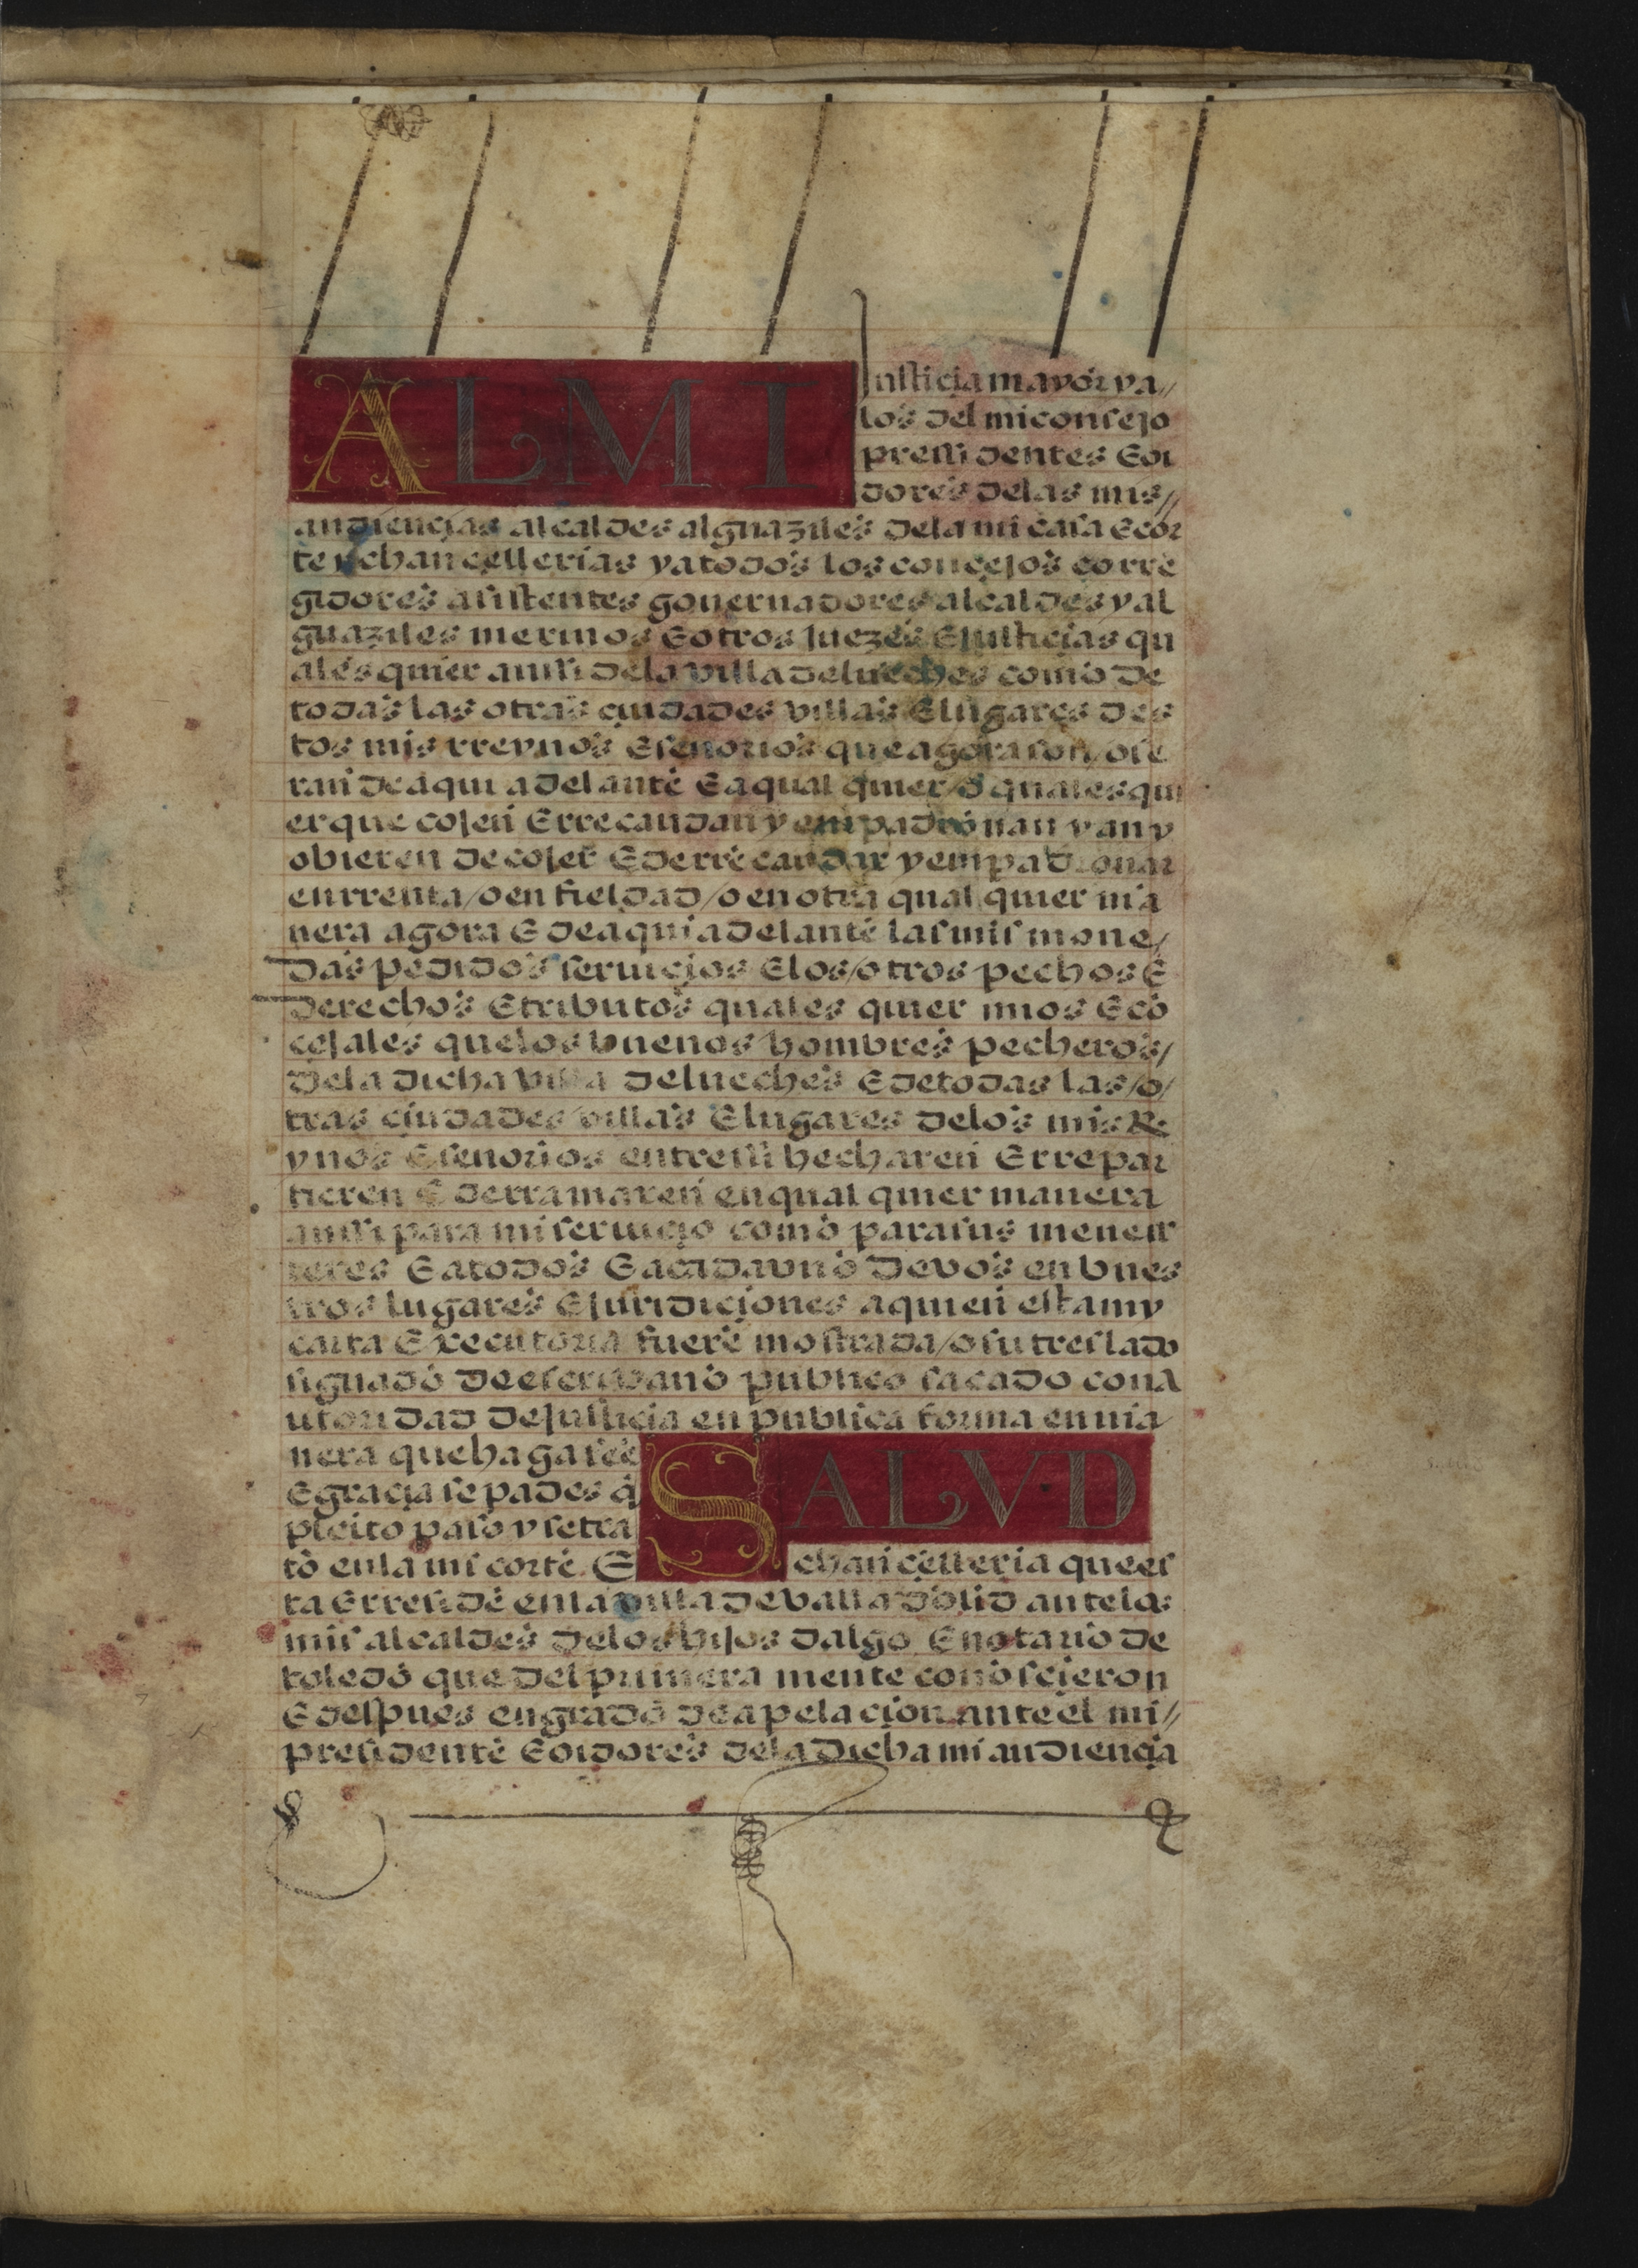 AL MI Justicia mayor y a//
los del mi consejo
pressidentes E oi
dores de las mis//
audiencias alcaldes alguaziles de la mi casa E cor
te y chancellerias y a todos los concejos corre
gidores asistentes gouernadores alcaldes y al
guaziles merinos E otros Juezes E Justicias qu
ales quier anssi de la villa de lueches como de
todas las otras ciudades villas E lugares des
tos mis rreynos E señorios que agora son / o se
ran de aqui adelante E a qual quier / o quales qui
er que cojen E rrecaudan y enpadronan y an y
obieren de cojer E de rrecaudar y enpadronar
en rrenta / o en fieldad / o en otra qual quier ma
nera agora E de aqui adelante las mis mone/
das pedidos seruicios E los / otros pechos E
derechos E tributos quales quier mios E cō
cejales que los buenos hombres pecheros/
de la dicha villa de lueches E de todas las / o/
tras ciudades villas E lugares de los mis Re
ynos E señorios entre ssi hecharen E rrepar
tieren E derramaren en qual quier manera
anssi para mi seruicio como para sus menes
teres E a todos E a cada vno de vos en vues
tros lugares E juridiciones a quien esta my
carta Executoria fuere mostrada / o su treslado
signado de escrivano publico sacado con a
utoridad de justicia en publica forma en ma
nera que haga fee SALVD
E gracia sepades q̄
pleito paso y se tra
to en la mi corte E chancelleria que es
ta E rreside en la villa de valladolid ante los
mis alcaldes de los hijos dalgo E notario de
toledo que del primera mente conoscieron
E despues en grado de apelacion ante el mi//
presidente E oidores de la dicha mi audiencia